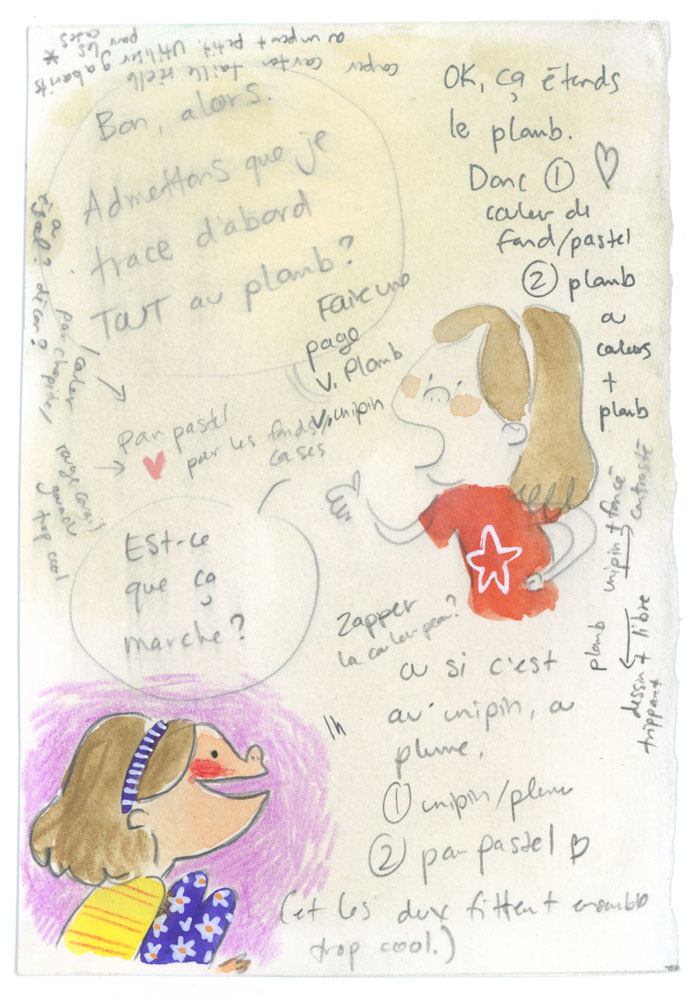 couper carton taille réelle
un peu + petit. Utiliser gabarits
pour les
cases *
Bon, alors.
Admettons que je
trace d'abord
TOUT au plomb?
OK, ça étends
le plomb.
Donc ①
couler de
fond/pastel
② plomb
ou
couleurs
+
plomb
Faire une
page
V. Plomb
V. unipin
Pan pastel
par les fonds/
cases
1 couleur
par chapitre/
trop cool
Est-ce
que ça
marche?
Zapper
la couleur peau?
unipin + foncé
contrasté
plomb
dessin + libre
trippant
1h
ou si c'est
au unipin, ou
plume.
① unipin/plume
② pan pastel
(et les deux fittent ensemble
trop cool.)